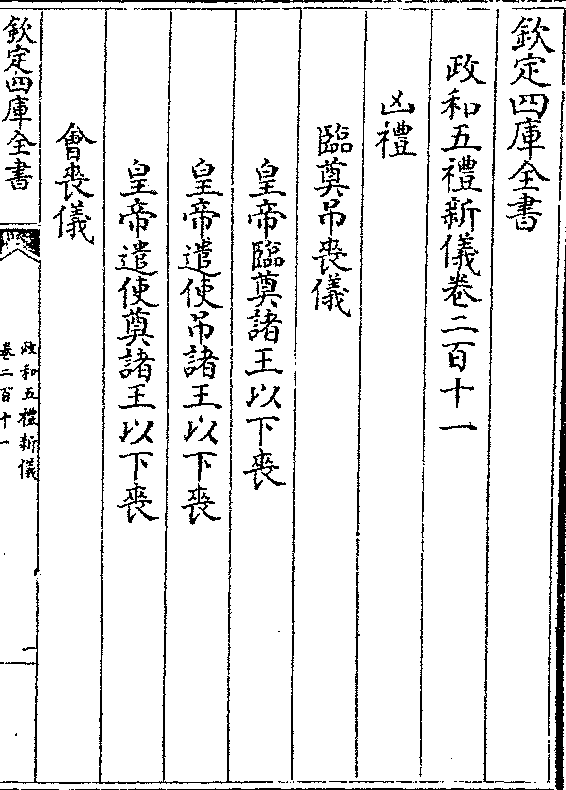 欽定四庫全書
政和五禮新儀卷二百十一
凶禮
臨奠吊喪儀
皇帝臨奠諸王以下喪
皇帝遣使吊諸王以下喪
皇帝遣使奠諸王以下喪
會喪儀
欽定四庫全書
政和五禮新儀
卷二百十一
一